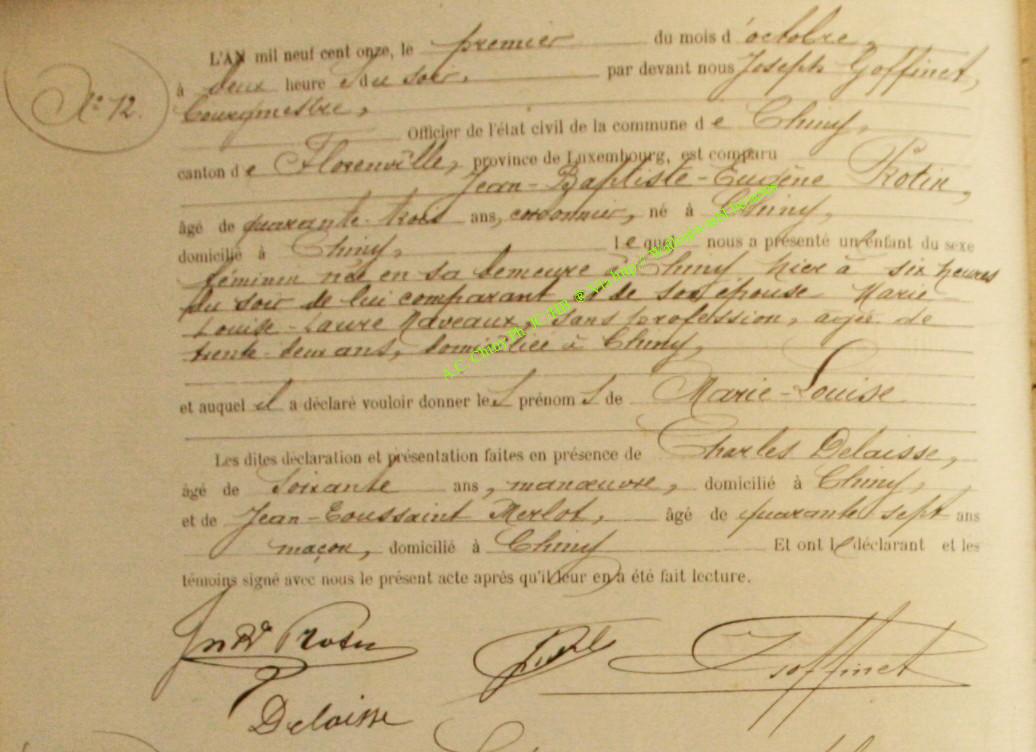 N° 12.
L'AN mil neuf cent onze, le premier du mois d'octobre,
à deux heures du soir, par devant nous Joseph Goffinet,
bourgmestre,
Officier de l'état civil de la commune de Chiny,
canton de Florenville, province de Luxembourg, est comparu
Jean-Baptiste-Eugène Rotin,
âgé de quarante-trois ans, cordonnier, né à Chiny,
domicilié à Chiny, lequel nous a présenté un enfant du sexe
féminin née en sa demeure à Chiny, hier à six heures
du soir de lui comparant et de son épouse Marie-
Louise-Laure Naveaux, sans profession, agée de
trente-deux ans, domiciliée à Chiny,
et auquel il a déclaré vouloir donner les prénoms de Marie-Louise
Les dites déclaration et présentation faites en présence de Charles Delaisse,
âgé de soixante ans, manœuvre, domicilié à Chiny,
et de Jean-Toussaint Merlot, âgé de quarante sept ans
maçon, domicilié à Chiny Et ont le déclarant et les
témoins signé avec nous le présent acte après qu'il leur en a été fait lecture.
Rotin
Goffinet
Delaisse